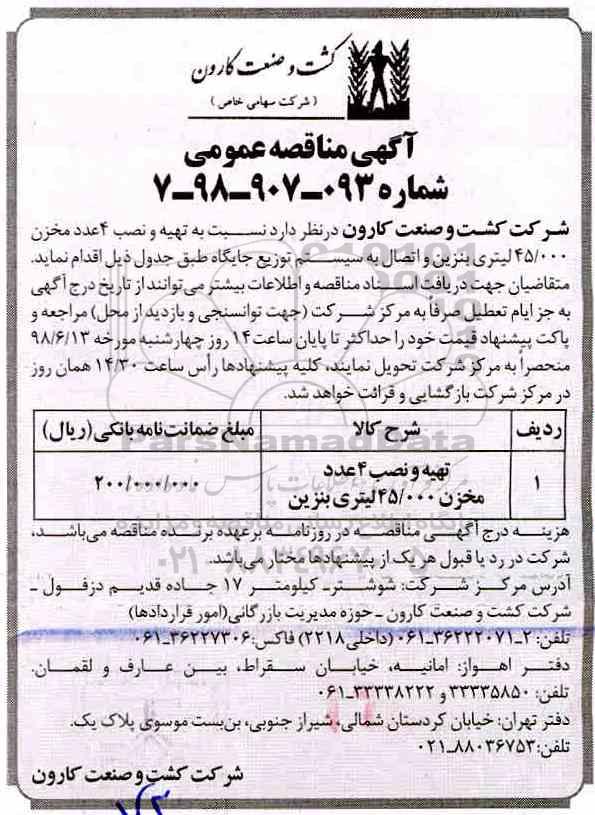 کشت و صنعت کارون
(شرکت سهامی خاص)
آگهی مناقصه عمومی
شماره ۰۹۳-۹۰۷-۹۸-۷
شرکت کشت و صنعت کارون درنظر دارد نسبت به تهیه و نصب ۴عدد مخزن
۴۵/۰۰۰ لیتری بنزین و اتصال به سیستم توزیع جایگاه طبق جدول ذیل اقدام نماید.
متقاضیان جهت دریافت اسناد مناقصه و اطلاعات بیشتر می‌توانند از تاریخ درج آگهی
به جز ایام تعطیل صرفاً به مرکز شرکت (جهت توانسنجی و بازدید از محل) مراجعه و
پاکت پیشنهاد قیمت خود را حداکثر تا پایان ساعت ۱۴ روز چهارشنبه مورخه ۹۸/۶/۱۳
منحصراً به مرکز شرکت تحویل نمایند، کلیه پیشنهادها رأس ساعت ۱۴/۳۰ همان روز
در مرکز شرکت بازگشایی و قرائت خواهد شد.
ردیف شرح کالا مبلغ ضمانت‌نامه بانکی (ریال)
۱ تهیه و نصب ۴عدد مخزن ۴۵/۰۰۰لیتری بنزین ۲۰۰/۰۰۰/۰۰۰
ParsNamadData
هزینه درج آگهی مناقصه در روزنامه برعهده برنده مناقصه می‌باشد،
شرکت در رد یا قبول هریک از پیشنهادها مختار می‌باشد.
آدرس مرکز شرکت: شوشتر- کیلومتر ۱۷ جاده قدیم دزفول -
شرکت کشت و صنعت کارون - حوزه مدیریت بازرگانی(امور قراردادها)
تلفن: ۲-۳۶۲۲۲۰۷۱-۰۶۱ (داخلی۲۲۱۸) فاکس:۳۶۲۲۷۳۰۶-۰۶۱
دفتر اهواز: امانیه، خیابان سقراط، بین عارف و لقمان.
تلفن: ۳۳۳۳۵۸۵۰ و ۳۳۳۳۸۲۲۲-۰۶۱
دفتر تهران: خیابان کردستان شمالی، شیراز جنوبی، بن‌بست موسوی پلاک یک.
تلفن:۸۸۰۳۶۷۵۳-۰۲۱
شرکت کشت و صنعت کارون